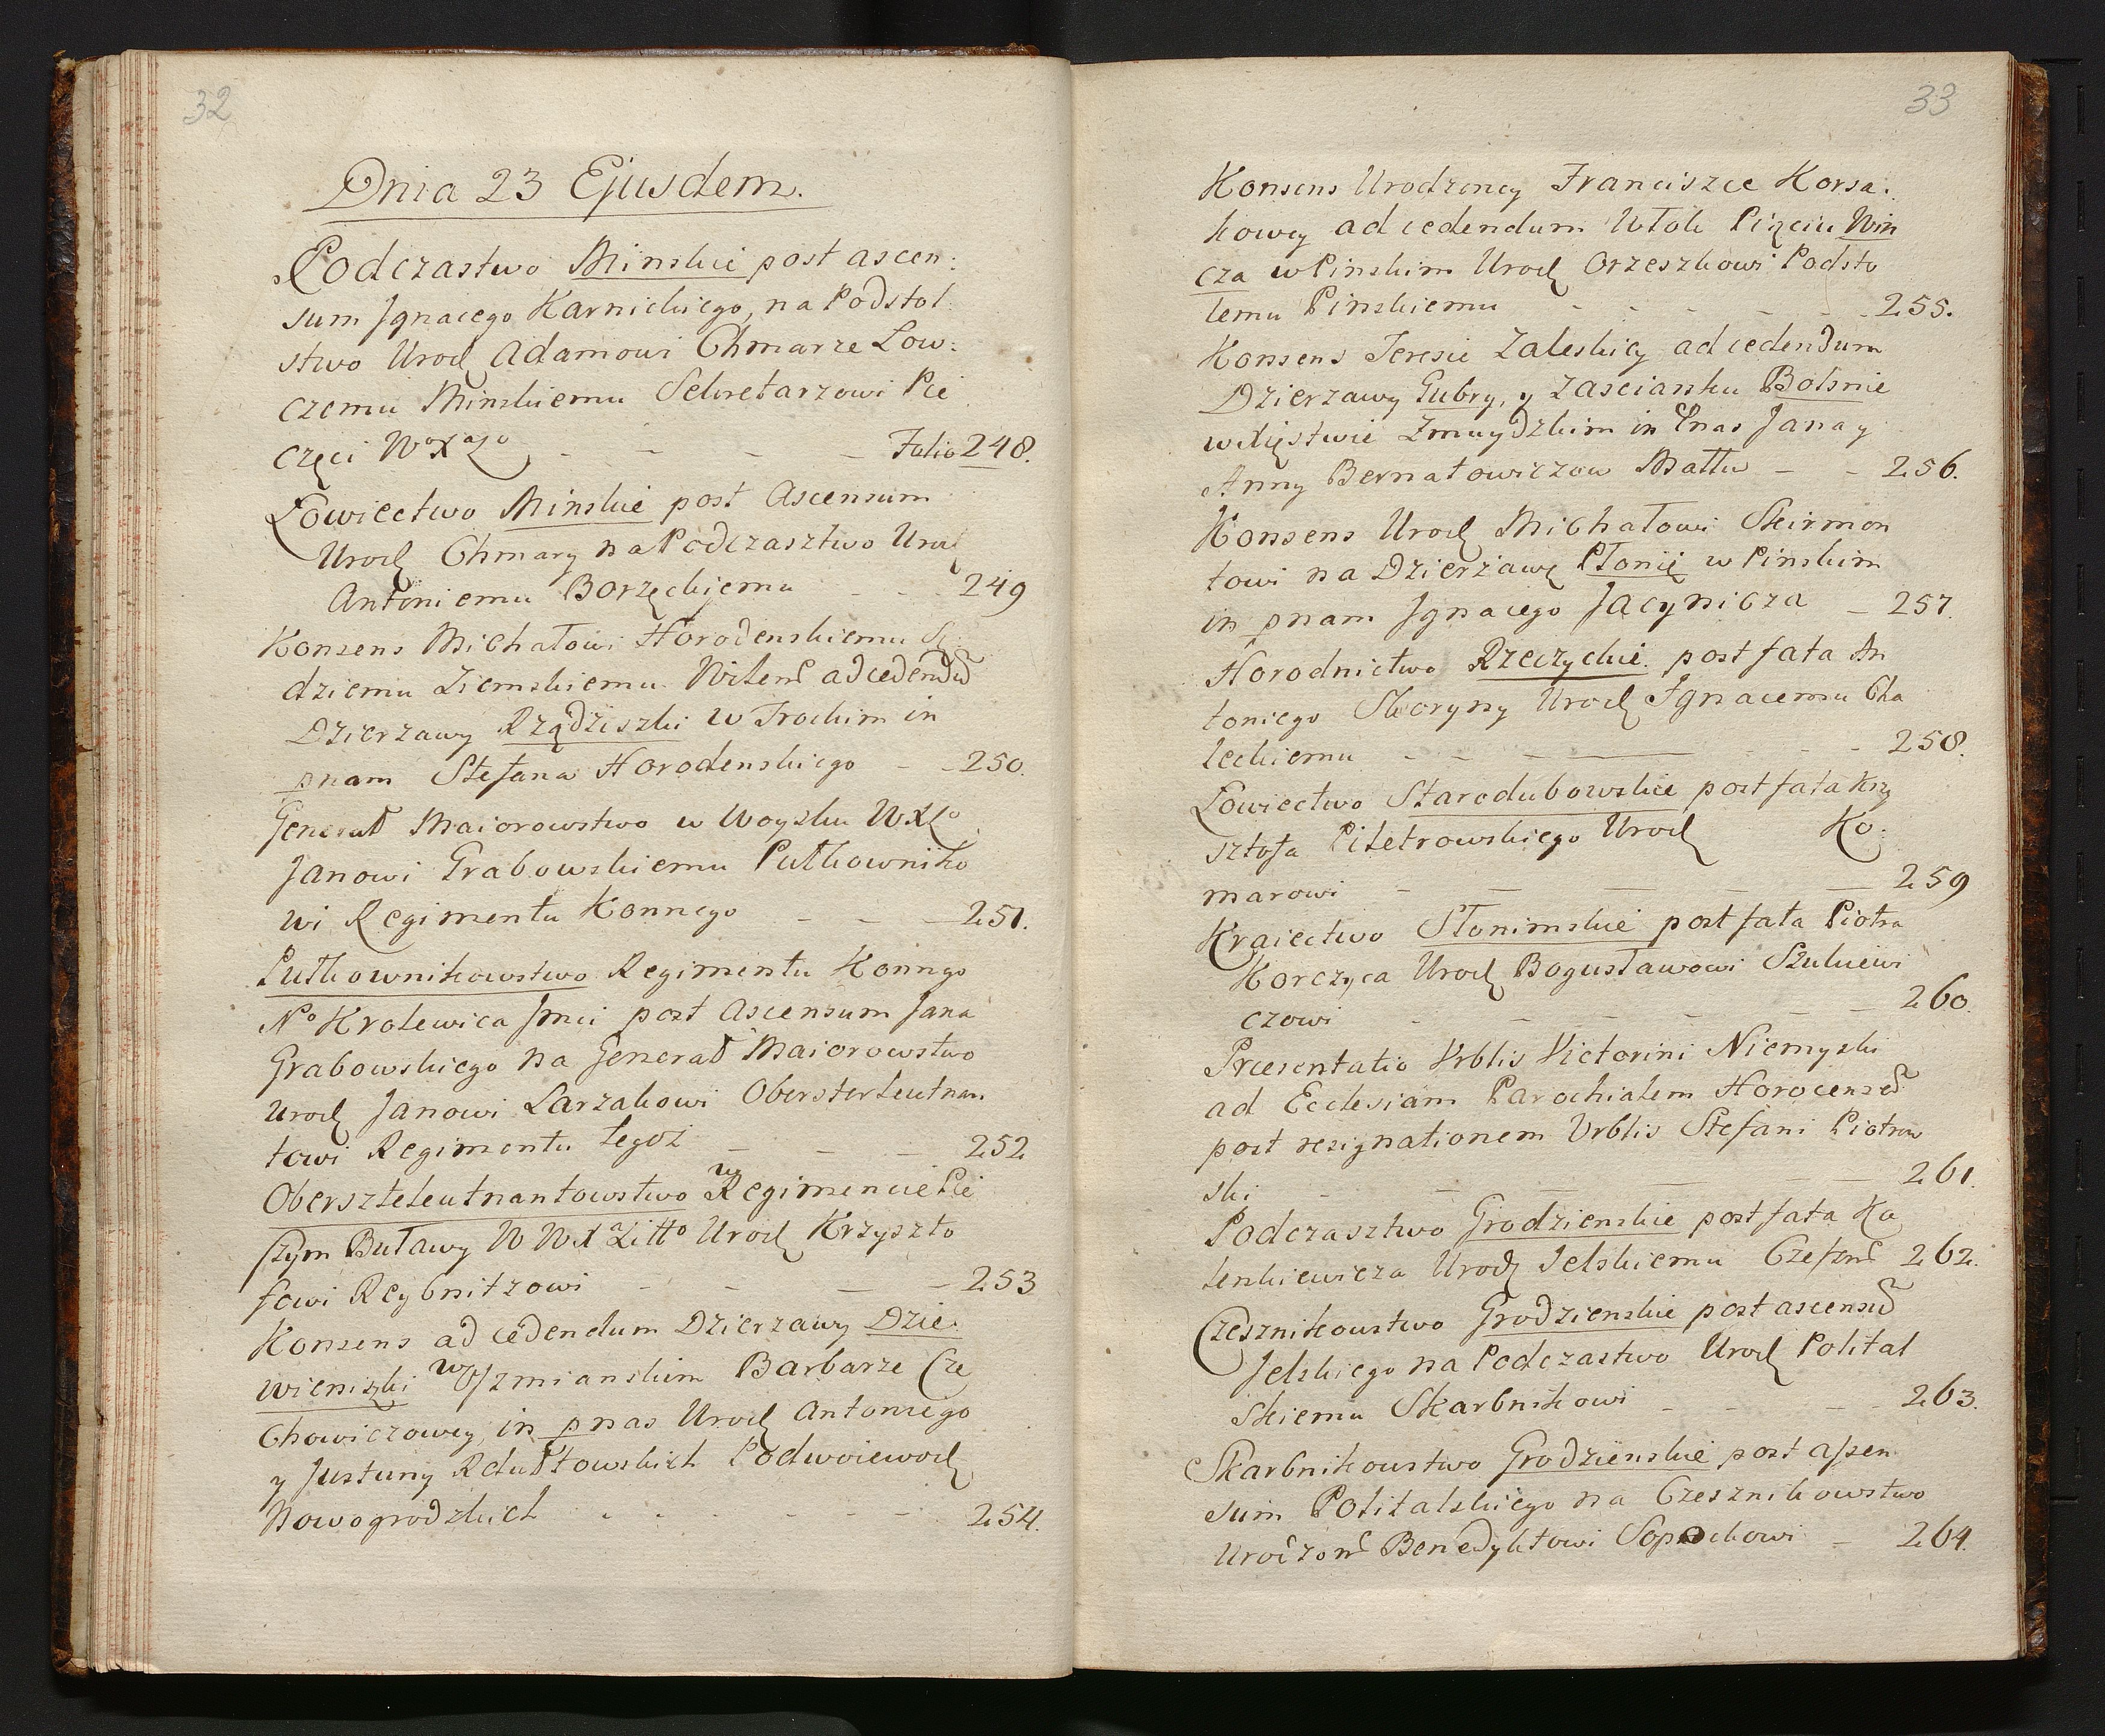 32
Dnia 23 Ejusdem.
Podczastwo Minskie post ascen:
sum Jgnacego Karnickiego, na Podstol
stwo Urod Adamowi Chmarze Low:
czemu Minskiemu Sekretarzowi Pie
częci WoXaLo - - - - Folio 248.
Łowiectwo Minskie post Ascensum
Urod Chmary na Podczasztwo Urod
Antoniemu Borzęckjemu - - - 249
Konsens Michałowi Horodenskiemu Sę
dziemu Ziemskiemu Wilens ad cedendu
Dzierzawy Rządziszki w Trockim in
pnam Stefana Horodenskiego - - 250.
Generał Maiorowstwo w Woysku WXLo
Janowi Grabowskiemu Pułkowniko
wi Regimentu Konnego - - - 251.
Pułkownikowstwo Regimentu Konngo
No Krolewica Jmci post Ascensum Jana
Grabowskiego na Generał Maiorowstwo
Urod Janowi Larzakowi Oberster Leutnan
towi Regimentu tegoż - - - 252
Oberszteleutnantowstwo w Regimencie Pie
szym Buławy W WX Litto Urod Krzyszto
fowi Reybnitzowi - - - - 253
Konsens ad cedendum Dzierzawy Dzie
wieniszki w Oszmianskim Barbarze Cze
Chowiczowey, in pnas Urod Antoniego
y Justyny Rdułtowskich Podwoiewod
Nowogrodzkich - - - - - - 254.
33
Konsens Urodzoney Franciszce Korsa:
kowey ad cedendum Włok Pięciu Win
cza w Pinskim Urod Orzeszkowi Podsto
lemu Pinskiemu - - - - - 255.
Konsens Teresie Zaleskiey ad cedendum
Dzierzawy Gubry, y Zascianku Bolsnie
w Xięstwie Zmuydzkim in Enas Jana y
Anny Bernatowiczow Małłu - - 256.
Konsens Urod Michałowi Skirmon
towi na Dzierżawę Płonię w Pinskim
in pnam Jgnacego Jacynicza - 257.
Horodnictwo Rzeczyckie post fata An
toniego Skoryny Urod Jgnacemu Cha
leckiemu - - - - - 258.
Łowiectwo Starodubowskie post fata Krzy
sztofa Piletrowskiego Urod Ko:
marowi - - - - - 259
Kraiectwo Słonimskie post fata Piotra
Korczyca Urod Bogusławowi Szukiewi
czowi - - - - - - 260.
Præsentatio Vrblis Victorini Niemyski
ad Ecclesiam Parochialem Horocense
post resignationem Vrblis Stefani Piotrow
ski - - - - - - 261.
Podczasztwo Grodzienskie post fata Ka
lenkiewicza Urod Jelskiemu Czesznik 262.
Czesznikowstwo Grodzienskie post ascensu
Jelskiego na Podczastwo Urod Polital
skiemu Skarbnikowi - - - - 263.
Skarbnikowstwo Grodzienskie post assen
sum Politalskiego na Czesznikowstwo
Urodzon Benedyktowi Sopockowi - 264.